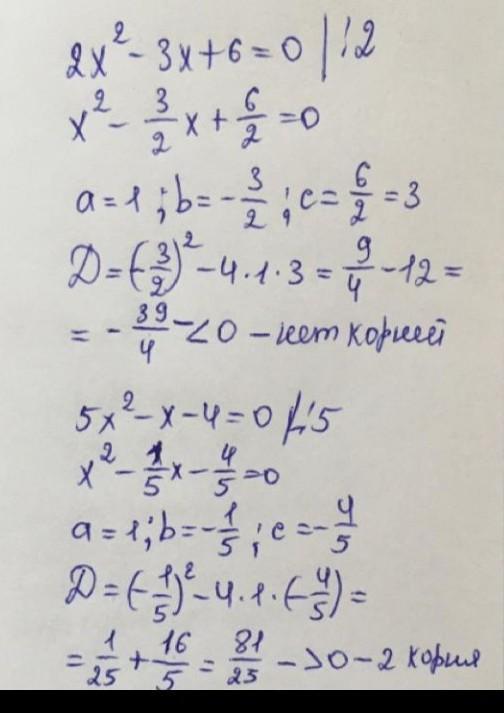 2x² - 3x + 6 = 0 | :2
x² - 3/2 x + 6/2 = 0
a = 1 ; b = - 3/2 ; c = 6/2 = 3
D = (- 3/2)² - 4 · 1 · 3 = 9/4 - 12 =
= - 39/4 - < 0 - нет корней
5x² - x - 4 = 0 | :5
x² - 1/5 x - 4/5 = 0
a = 1 ; b = - 1/5 ; c = - 4/5
D = (- 1/5)² - 4 · 1 · (- 4/5) =
= 1/25 + 16/5 = 81/25 - > 0 - 2 корня